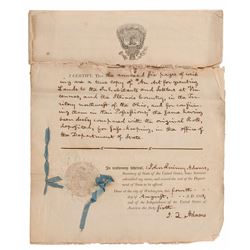 I CERTIFY, That the annexed six pages of wri-
ting are a true copy of "An Act for granting
Lands to the Inhabitants and settlers at Vin-
cennes, and the Illinois Country, in the Ter-
ritory northwest of the Ohio, and for confirm-
ing them in their Possessions," the same having
been duly compared with the original Rolls,
deposited, for safe keeping, in the office of
the Department of State
In testimony whereof, I John Quincy Adams,
Secretary of State of the United States, have hereunto
subscribed my name, and caused the seal of the Depart-
ment of State to be affixed.
Done at the city of Washington, this fourth
day of August, A.D.
and of the Independence of the United States of
America the forty
J. Q. Adams